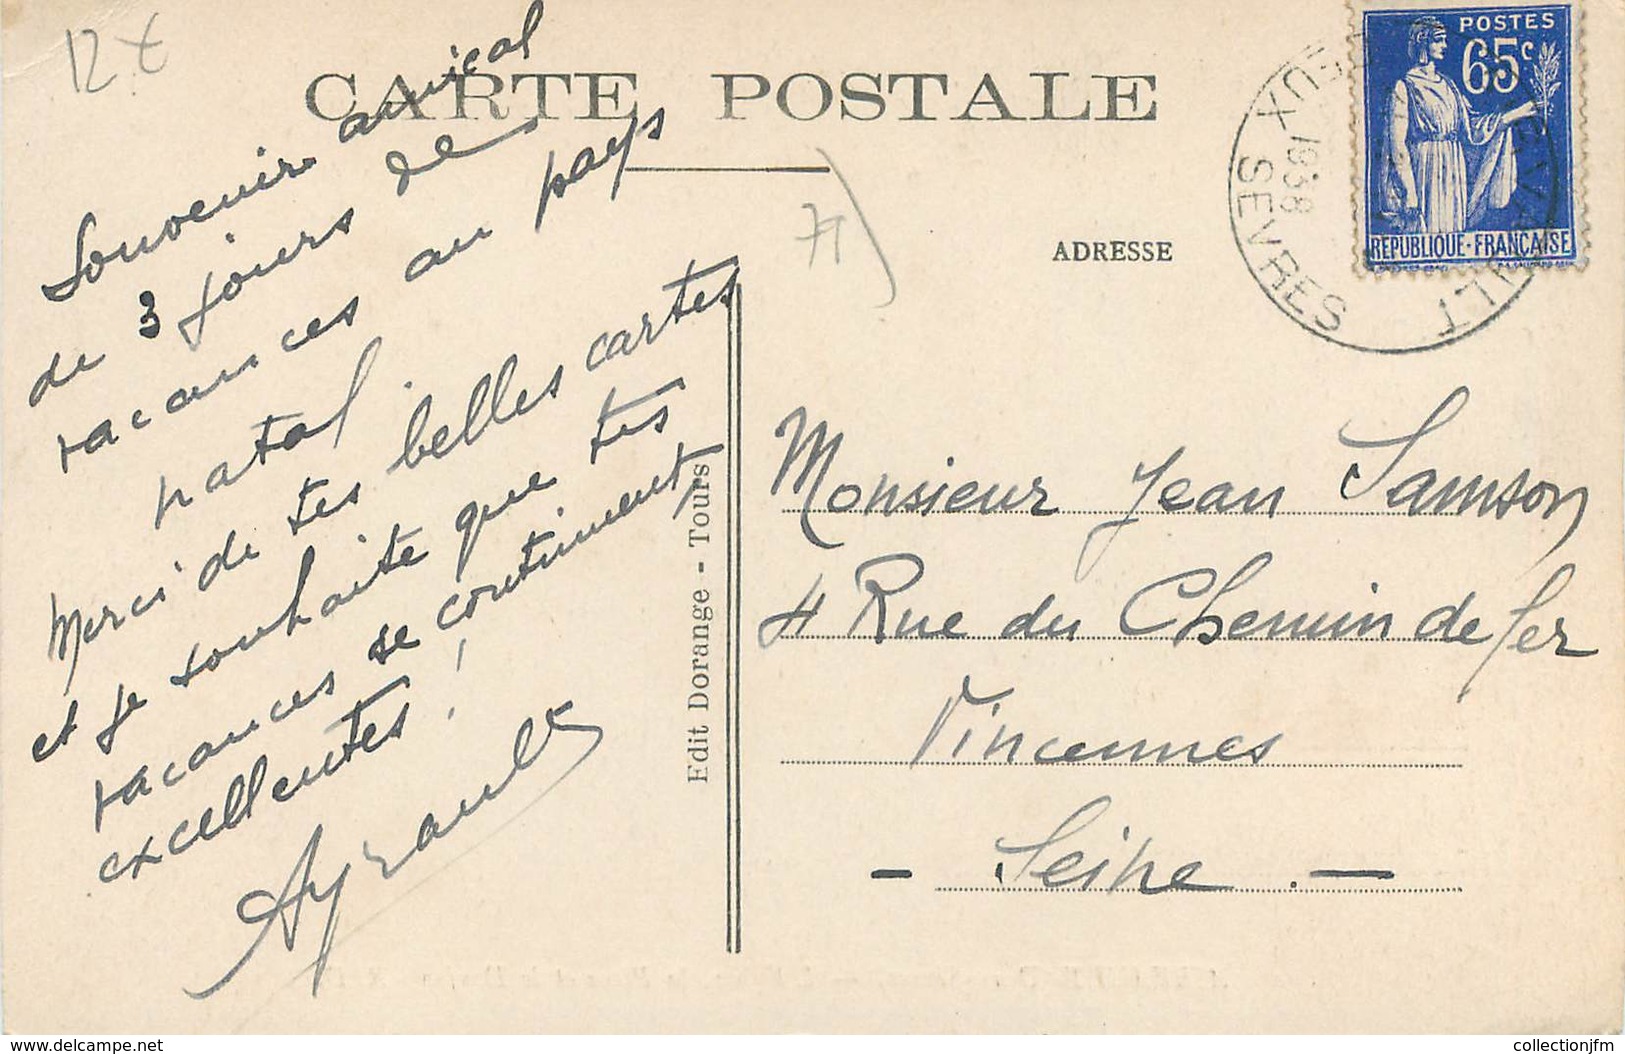 12 €
CARTE POSTALE
Souvenir amical
de 3 jours de
vacances au pays
natal
Merci de tes belles cartes
et je souhaite que tes
vacances se continuent
excellentes !
Ayrault
79
ADRESSE
POSTES
65c
REPUBLIQUE-FRANÇAISE
1938
SEVRES
Monsieur Jean Samson
4 Rue du Chemin de fer
Vincennes
- Seine . -
Edit Dorange - Tours
www.delcampe.net
collectionjfm